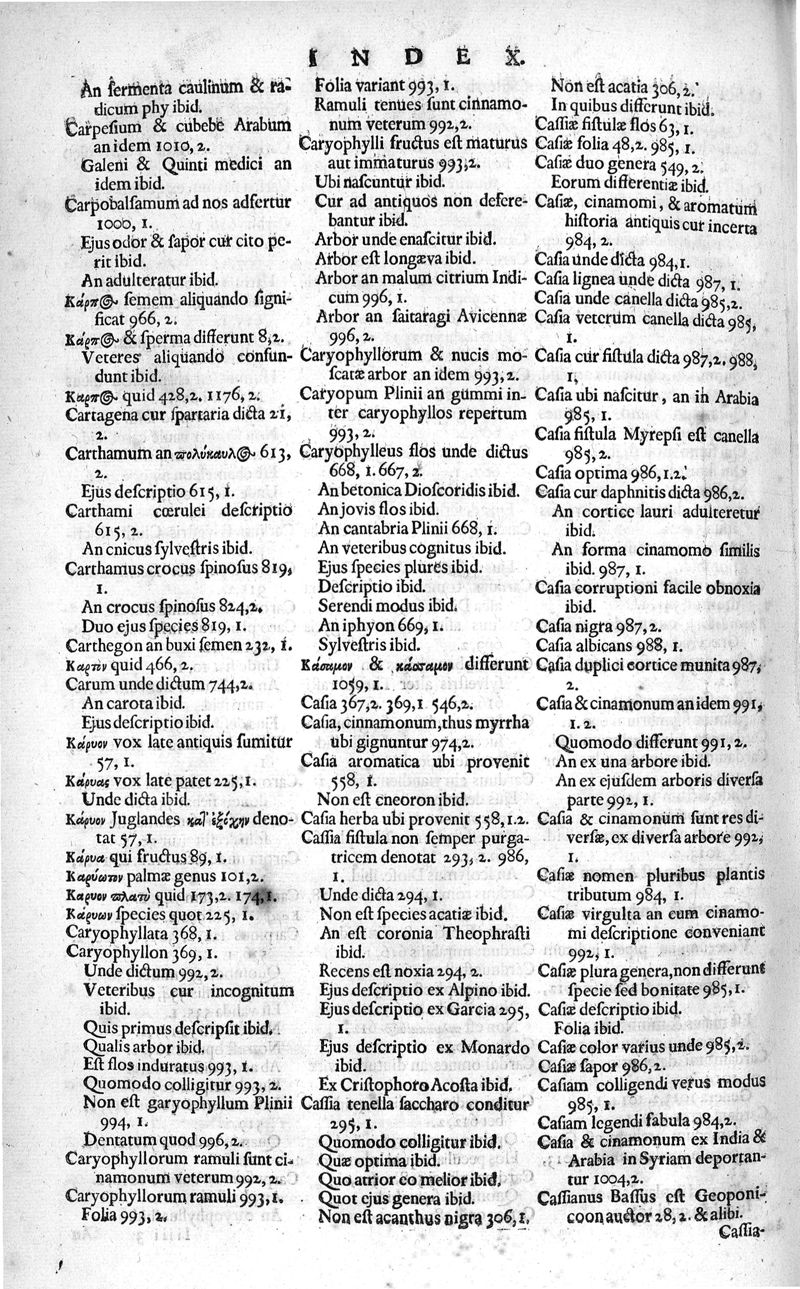 INDEX.
An fermenta caulinum & ra-
dicum phy ibid.
Carpesium & cubebe Arabum
an idem 1010, 2.
Galeni & Quinti medici an
idem ibid.
Carpobalsamum ad nos adfertur
1000, 1.
Ejus odor & sapor cur cito pe-
rit ibid.
An adulteratur ibid.
Κάρπος semem aliquando signi-
ficat 966, 2.
Κάρπος & sperma differunt 8, 2.
Veteres aliquando confun-
dunt ibid.
Καρπος quid 428, 2. 1176, 2.
Cartagena cur spartaria dicta 21,
2.
Carthamum an πολύκαυλος 613,
2.
Ejus descriptio 615, 1.
Carthami cœrulei descriptio
615, 2.
An cnicus sylvestris ibid.
Carthamus crocus spinosus 819,
1.
An crocus spinosus 824, 2.
Duo ejus species 819, 1.
Carthegon an buxi semen 232, 1.
Καρπὸν quid 466, 2.
Carum unde dictum 744, 2.
An carota ibid.
Ejus descriptio ibid.
Κάρυον vox late antiquis sumitur
57, 1.
Κάρυας vox late patet 225, 1.
Unde dicta ibid.
Κάρυον Juglandes κατ' ἐξόχην deno-
tat 57, 1.
Κάρυα qui fructus 89, 1.
Καρύωτον palmæ genus 101, 2.
Κάρυον πλατὺ quid 173, 2. 174, 1.
Κάρυων species quot 225, 1.
Caryophyllata 368, 1.
Caryophyllon 369, 1.
Unde dictum 992, 2.
Veteribus cur incognitum
ibid.
Quis primus descripsit ibid.
Qualis arbor ibid.
Est flos induratus 993, 1.
Quomodo colligitur 993, 2.
Non est garyophyllum Plinii
994, 1.
Dentatum quod 996, 2.
Caryophyllorum ramuli sunt ci-
namonum veterum 992, 2.
Caryophyllorum ramuli 993, 1.
Folia 993, 2.
Folia variant 993, 1.
Ramuli tenues sunt cinnamo-
num veterum 992, 2.
Caryophylli fructus est maturus
aut immaturus 993, 2.
Ubi nascuntur ibid.
Cur ad antiquos non defere-
bantur ibid.
Arbor unde enascitur ibid.
Arbor est longæva ibid.
Arbor an malum citrium Indi-
cum 996, 1.
Arbor an saitaragi Avicennæ
996, 2.
Caryophyllorum & nucis mo-
scatæ arbor an idem 993, 2.
Caryopum Plinii an gummi in-
ter caryophyllos repertum
993, 2.
Caryophylleus flos unde dictus
668, 1. 667, 2.
An betonica Dioscoridis ibid.
An jovis flos ibid.
An cantabria Plinii 668, 1.
An veteribus cognitus ibid.
Ejus species plures ibid.
Descriptio ibid.
Serendi modus ibid.
An iphyon 669, 1.
Sylvestris ibid.
Κάσαμον & κάσταμον differunt
1059, 1.
Casia 367, 2. 369, 1 546, 2.
Casia, cinnamonum, thus myrrha
ubi gignuntur 974, 2.
Casia aromatica ubi provenit
558, 1.
Non est cneoron ibid.
Casia herba ubi provenit 558, 1. 2.
Cassia fistula non semper purga-
tricem denotat 293, 2. 986,
1.
Unde dicta 294, 1.
Non est species acatiæ ibid.
An est coronia Theophrasti
ibid.
Recens est noxia 294, 2.
Ejus descriptio ex Alpino ibid.
Ejus descriptio ex Garcia 295,
1.
Ejus descriptio ex Monardo
ibid.
Ex Cristophoro Acosta ibid.
Cassia tenella saccharo conditur
295, 1.
Quomodo colligitur ibid.
Quæ optima ibid.
Quo atrior eo melior ibid.
Quot ejus genera ibid.
Non est acanthus nigra 306, 1.
Non est acatia 306, 2.
In quibus differunt ibid.
Cassiæ fistulæ flos 63, 1.
Casiæ folia 48, 2. 985, 1.
Casiæ duo genera 549, 2.
Eorum differentiæ ibid.
Casiæ, cinamomi, & aromatum
historia antiquis cur incerta
984, 2.
Casia unde dicta 984, 1.
Casia lignea unde dicta 987, 1.
Casia unde canella dicta 985, 2.
Casia veterum canella dicta 985,
1.
Casia cur fistula dicta 987, 2. 988,
1,
Casia ubi nascitur, an in Arabia
985, 1.
Casia fistula Myrepsi est canella
985, 2.
Casia optima 986, 1. 2.
Casia cur daphnitis dicta 986, 2.
An cortice lauri adulteretur
ibid.
An forma cinamomo similis
ibid. 987, 1.
Casia corruptioni facile obnoxia
ibid.
Casia nigra 987, 2.
Casia albicans 988, 1.
Casia duplici cortice munita 987,
2.
Casia & cinamonum an idem 991,
1. 2.
Quomodo differunt 991, 2.
An ex una arbore ibid.
An ex ejusdem arboris diversa
parte 992, 1.
Casia & cinamonum sunt res di-
versæ, ex diversa arbore 992,
1.
Casiæ nomen pluribus plantis
tributum 984, 1.
Casiæ virgulta an cum cinamo-
mi descriptione conveniant
992, 1.
Casiæ plura genera, non differunt
specie sed bonitate 985, 1.
Casiæ descriptio ibid.
Folia ibid.
Casiæ color varius unde 985, 2.
Casiæ sapor 986, 2.
Casiam colligendi verus modus
985, 1.
Casiam legendi fabula 984, 2.
Casia & cinamonum ex India &
Arabia in Syriam deportan-
tur 1004, 2.
Cassianus Bassus est Geoponi-
coon auctor 28, 2. & alibi.
Cassia-